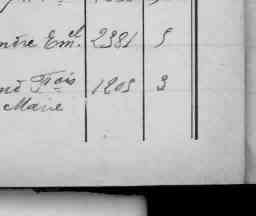 ndre Em.el 2381 5
nd Fcois 1205 3
Marie